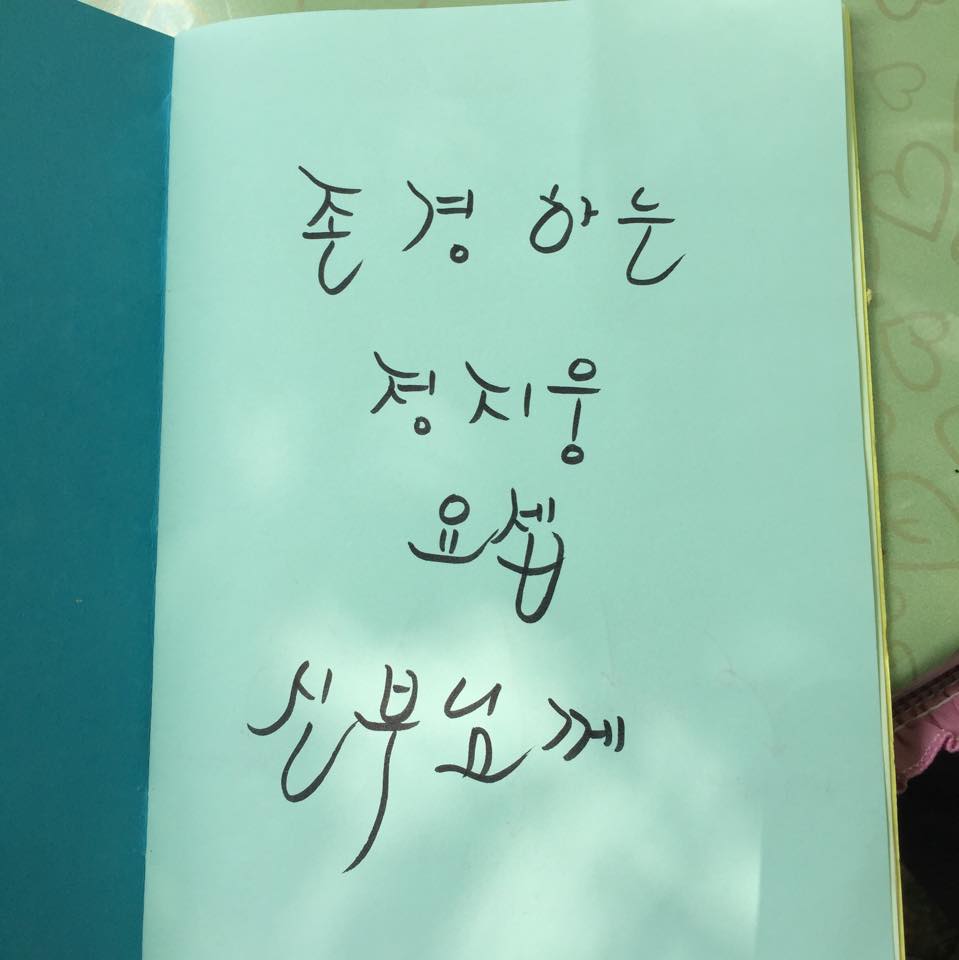 존경하는
정지웅
요셉
신부님께